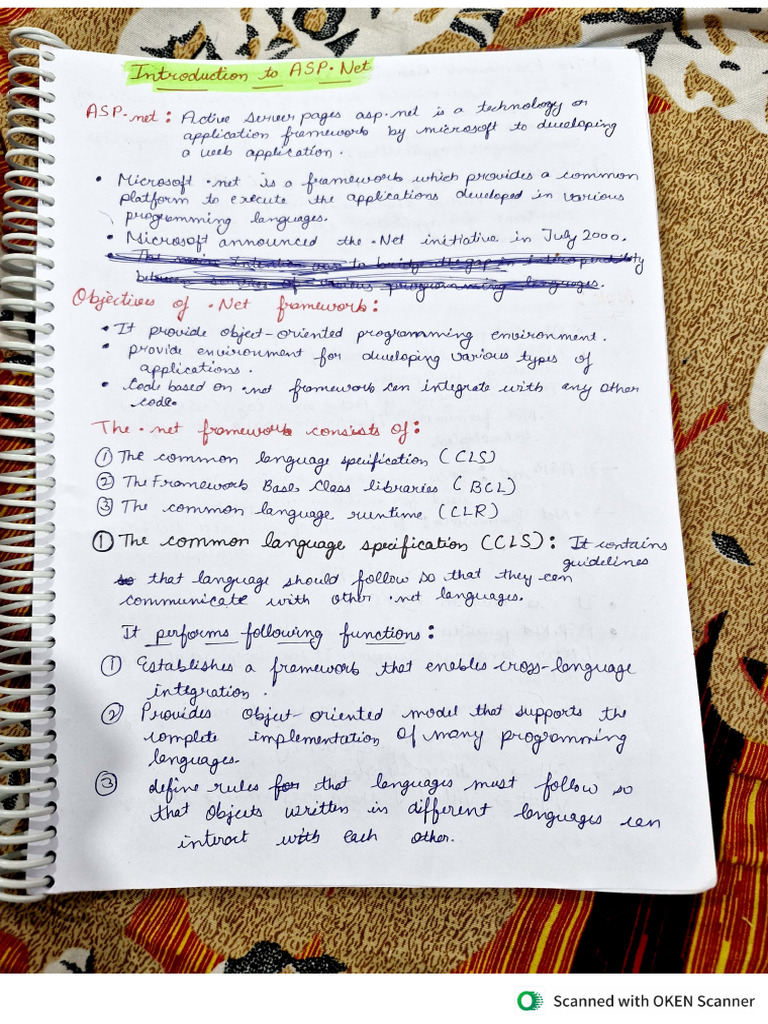 Introduction to ASP.Net
ASP.net: Active server pages asp.net is a technology or
application framework by microsoft to developing
a web application.
• Microsoft .net is a framework which provides a common
platform to execute the applications developed in various
programming languages.
• Microsoft announced the .Net initiative in July 2000.
• The main intention was to bridge the gap in interoperability
between services of various programming languages.
Objectives of .Net framework:
• It provide object-oriented programming environment.
• provide environment for developing various types of
applications.
• Code based on .net framework can integrate with any other
code.
The .net framework consists of:
① The common language specification (CLS)
② The Framework Base Class libraries (BCL)
③ The common language runtime (CLR)
① The common language specification (CCLS): It contains
guidelines
so that language should follow so that they can
communicate with other .net languages.
It performs following functions:
① Establishes a framework that enables cross-language
integration.
② Provides object-oriented model that supports the
complete implementation of many programming
languages.
③ define rules for that languages must follow so
that objects written in different languages can
interact with each other.
Scanned with OKEN Scanner